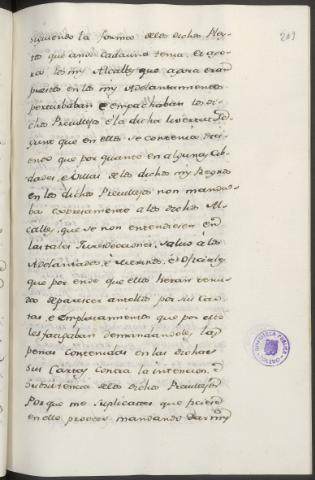 siguiendo la forma dellos dichos Pley-
tos que ante cada uno tenia. Et ago-
ra los mys Alcalles que agora eran
puestos en los mys Adelantamientos
perturbaban e empachaban los di-
chos Previllejos e la dicha livertad se-
gunt que en ellos se contenia, dici-
endo que por quanto en algunas Cib-
dades, e Villas de los dichos mys Regnos
en los dichos Previllejos non mandá-
ba expresamente a los dichos Al-
calles, que se non entendiesen en
las tales Jurisdiciones, salvo á los
Adelantados, é Merinos, é Oficiales
que por ende que ellos heran tenu-
dos de parescer ante ellos por sus Car-
tas, e Emplazamientos que por ello
les fazaban demandandoles las
penas contenidas en las dichas
sus Cartas contra la intencion, é
sustentencia dellos dichos Previllejos
Porque me suplicastes que sciere
en ello proveer mandando dar my
203
BIBLIOTECA PUBLICA
TOLEDO